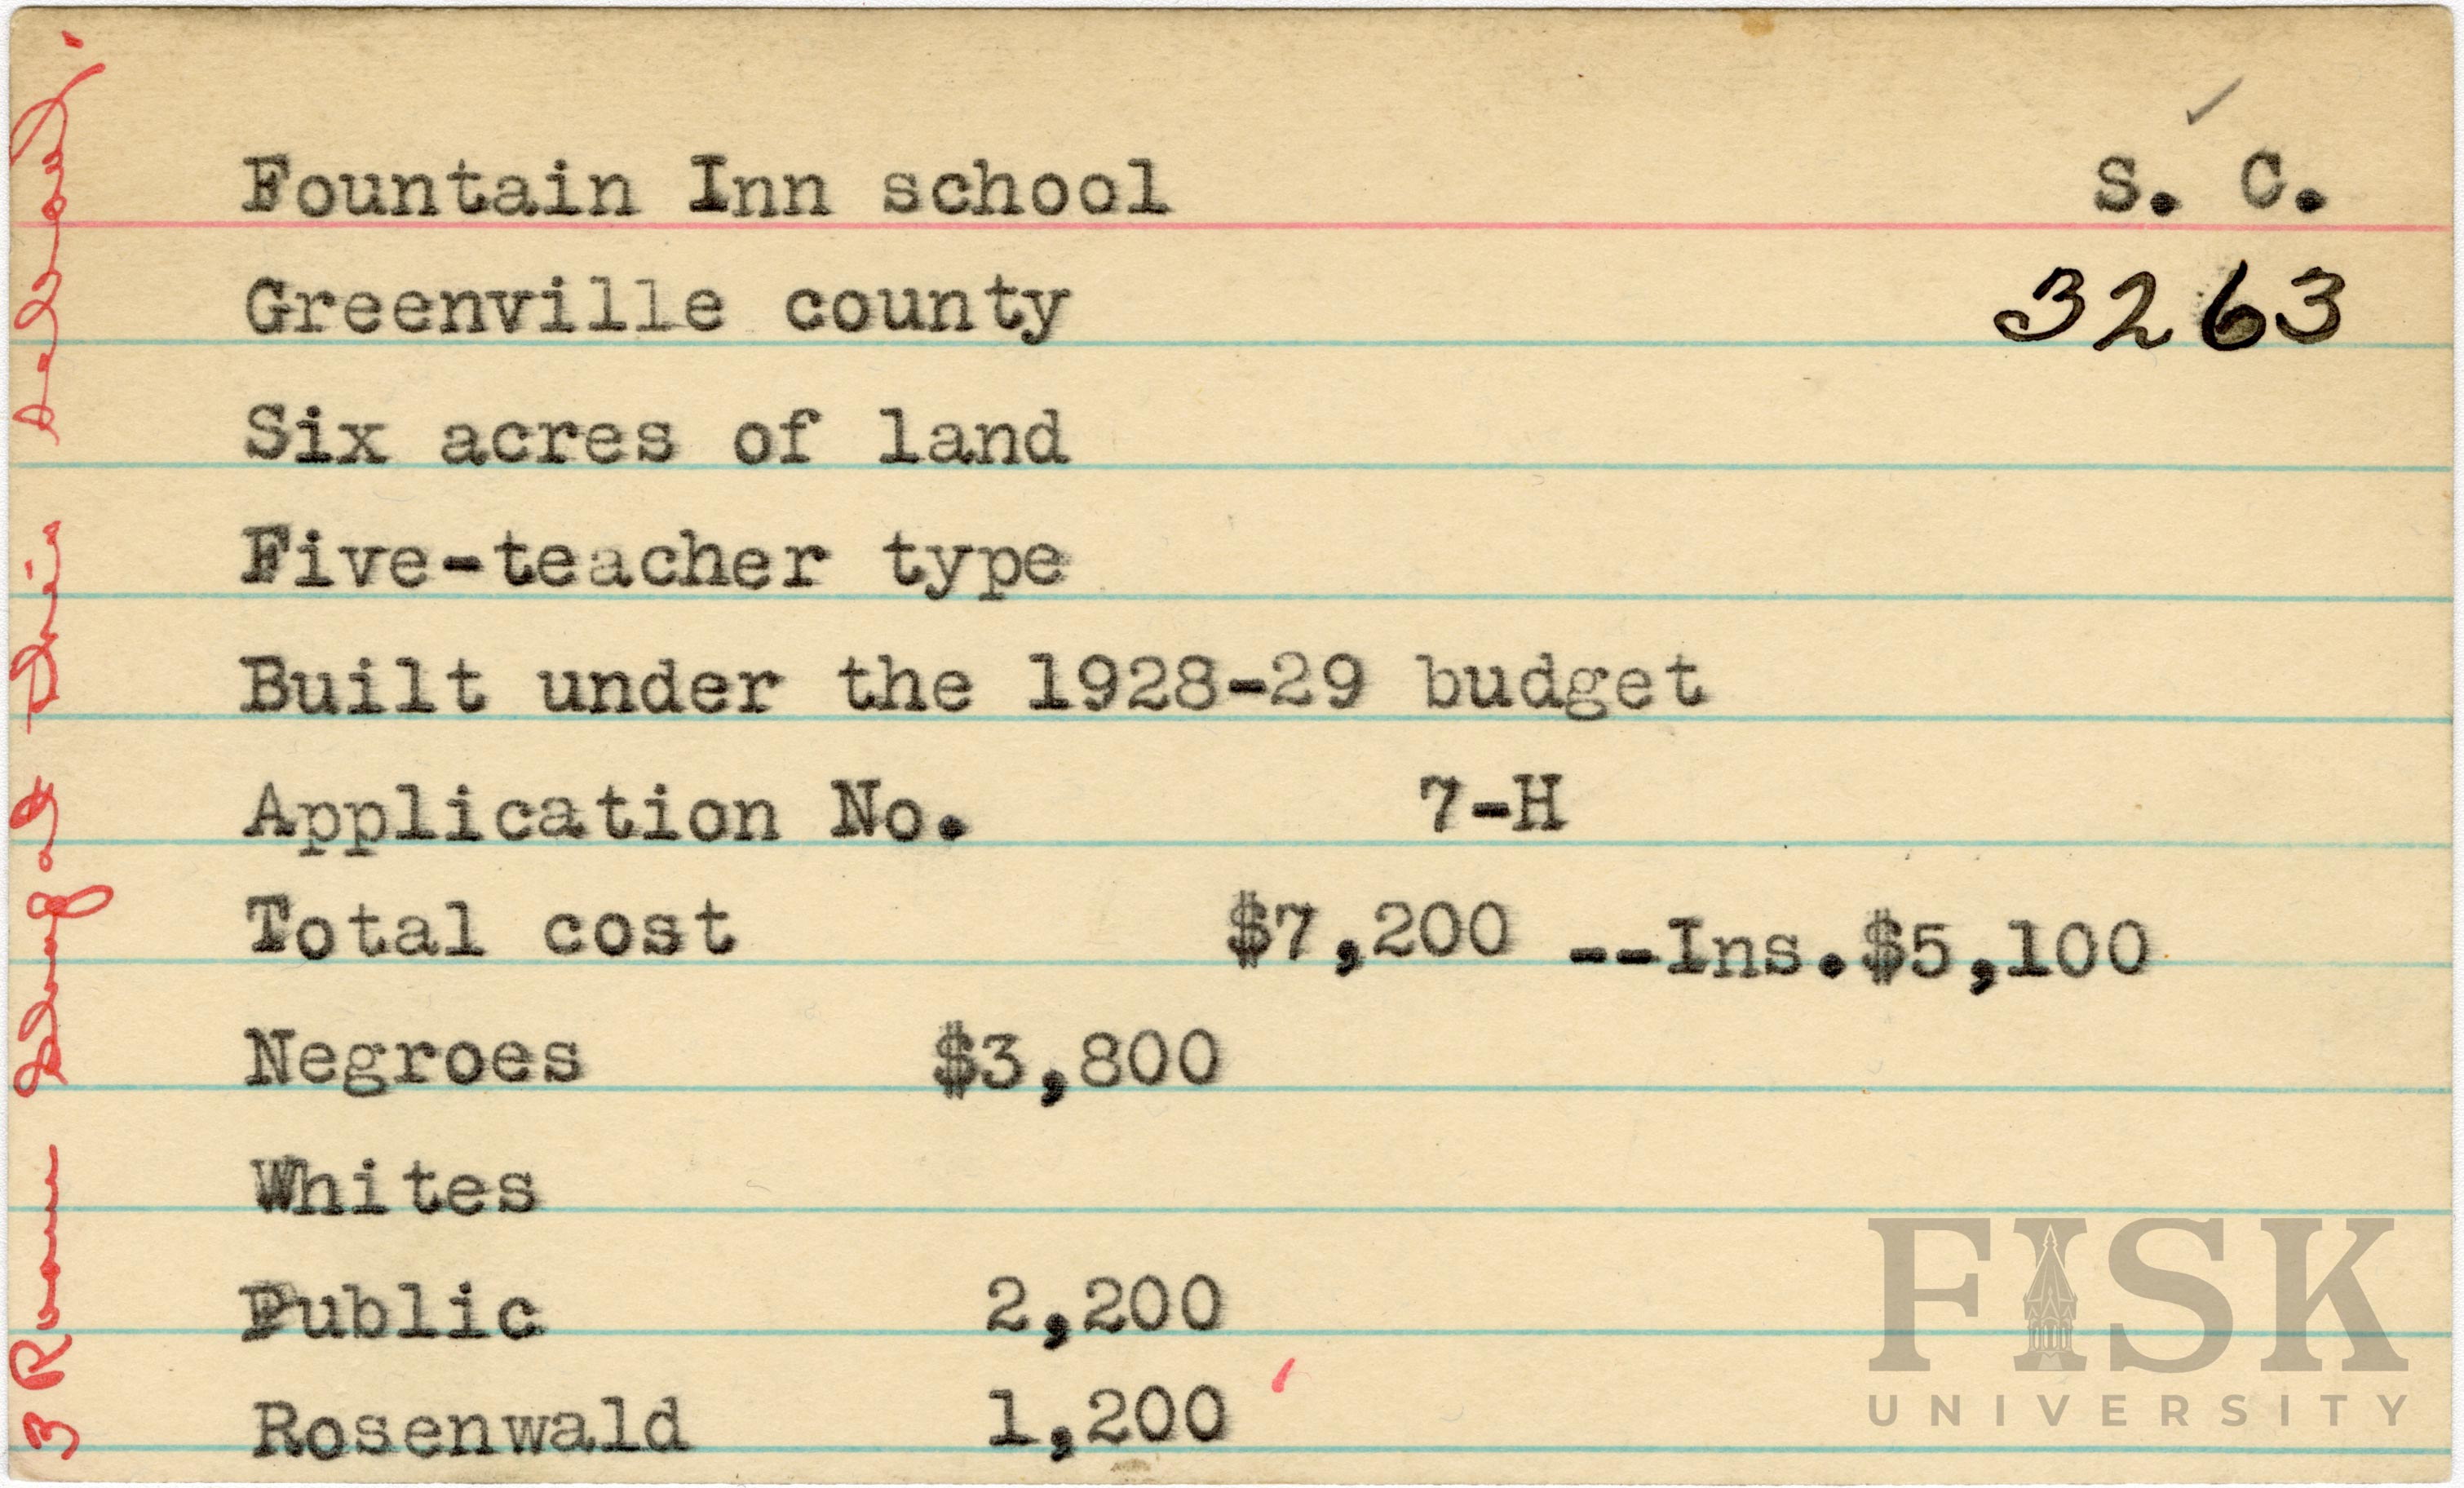 Fountain Inn school S. C.
Greenville county 3263
Six acres of land
Five-teacher type
Built under the 1928-29 budget
Application No. 7-H
Total cost $7,200 --Ins.$5,100
Negroes $3,800
Whites
Public 2,200
Rosenwald 1,200
3 Room
FISK
UNIVERSITY